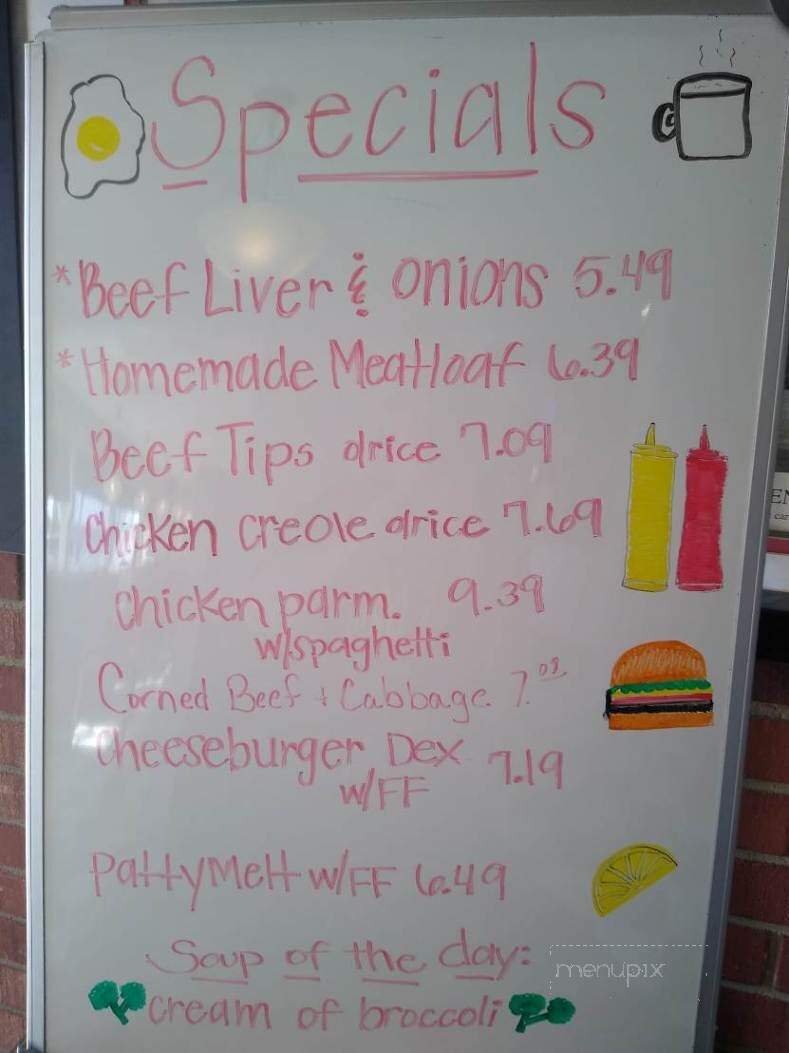 Specials
*Beef Liver & onions 5.49
*Homemade Meatloaf 6.39
Beef Tips & rice 7.09
chicken creole & rice 7.69
chicken parm. 9.39
w/spaghetti
Corned Beef + Cabbage 7.09
cheeseburger Dex 7.19
w/FF
pattymelt w/FF 6.49
Soup of the day:
cream of broccoli
menupix